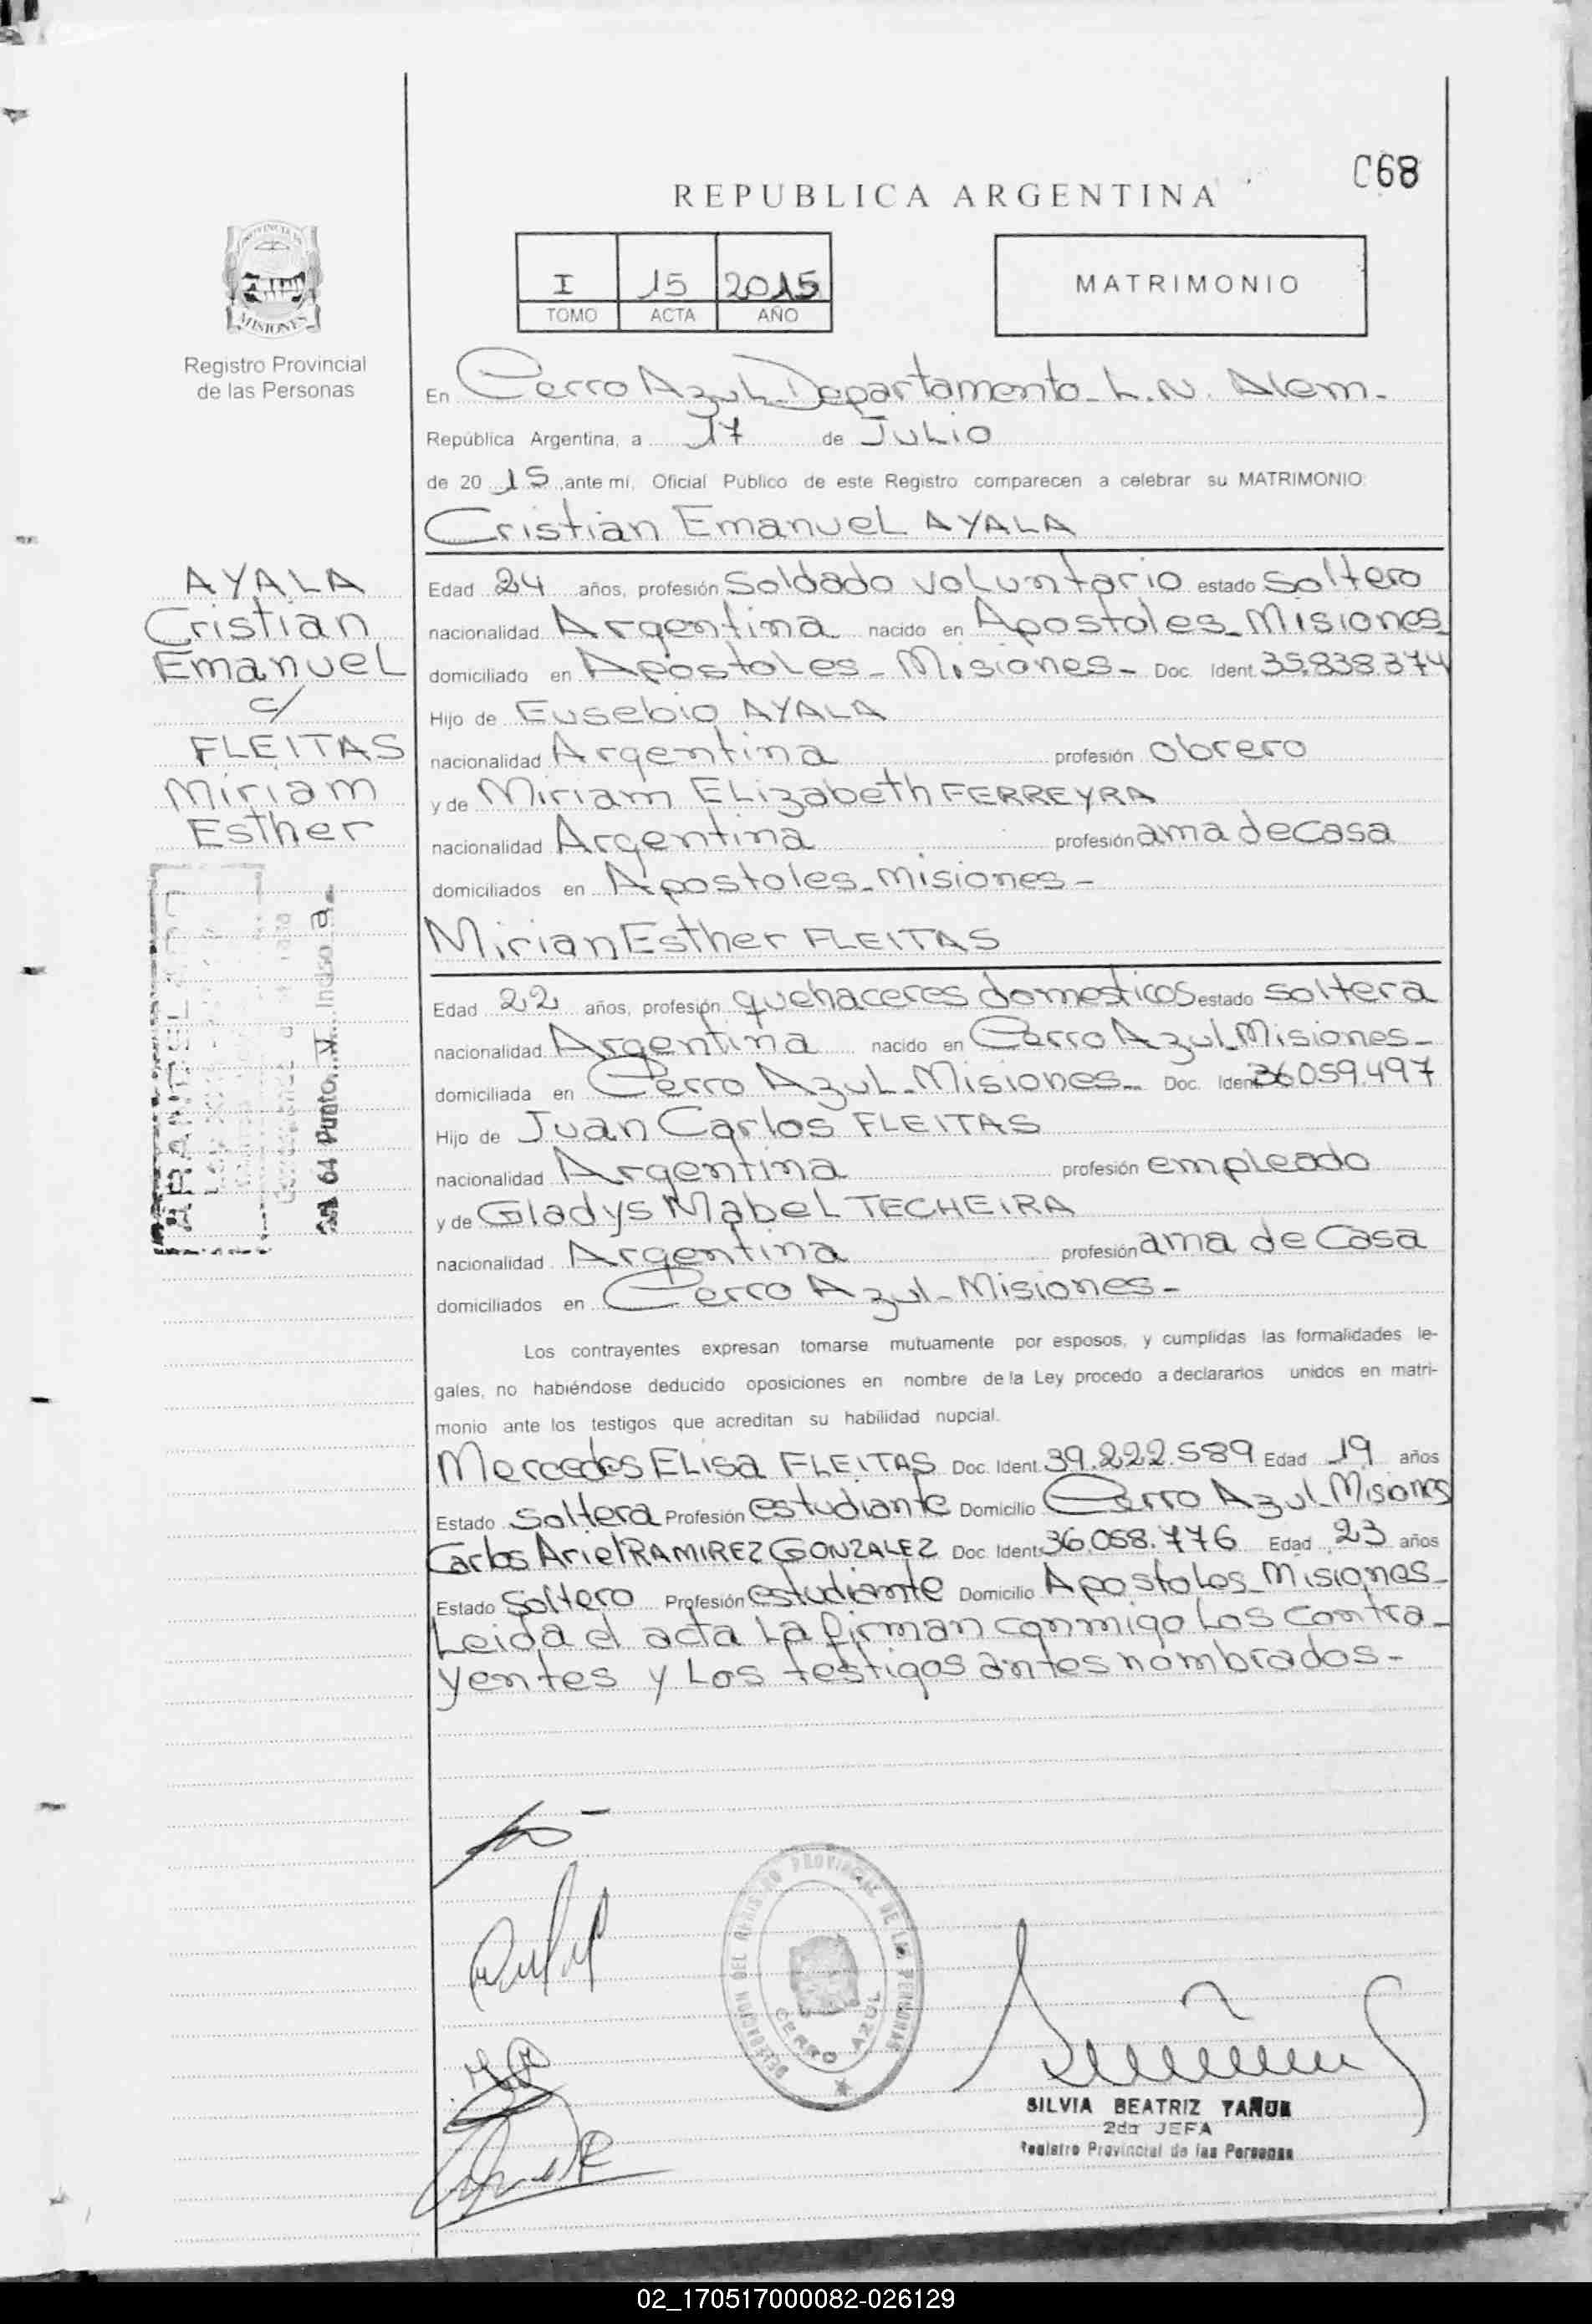 C68
REPUBLICA ARGENTINA
I 15 2015
TOMO ACTA AÑO
MATRIMONIO
MISIONES
Registro Provincial
de las Personas
En Cerro Azul-Departamento-L.N. Alem-
República Argentina, a 17 de Julio
de 20 15 ante mí, Oficial Público de este Registro comparecen a celebrar su MATRIMONIO:
Cristian Emanuel AYALA
AYALA
Cristian
Emanuel
c/
FLEITAS
Miriam
Esther
Edad 24 años, profesión Soldado voluntario estado Soltero
nacionalidad Argentina nacido en Apostoles-Misiones
domiciliado en Apostoles-Misiones- Doc. Ident. 35.838.374
Hijo de Eusebio AYALA
nacionalidad Argentina profesión obrero
y de Miriam Elizabeth FERREYRA
nacionalidad Argentina profesión ama de casa
domiciliados en Apostoles-Misiones-
Mirian Esther FLEITAS
Edad 22 años, profesión quehaceres domesticos estado soltera
nacionalidad Argentina nacido en Cerro Azul-Misiones-
domiciliada en Cerro Azul-Misiones- Doc. Ident. 36.059.497
Hijo de Juan Carlos FLEITAS
nacionalidad Argentina profesión empleado
y de Gladys Mabel TECHEIRA
nacionalidad Argentina profesión ama de Casa
domiciliados en Cerro Azul-Misiones-
64 Punto V Inciso a
Los contrayentes expresan tomarse mutuamente por esposos, y cumplidas las formalidades le-
gales, no habiéndose deducido oposiciones en nombre de la Ley procedo a declararlos unidos en matri-
monio ante los testigos que acreditan su habilidad nupcial.
Mercedes Elisa FLEITAS Doc. Ident. 39.222.589 Edad 19 años
Estado Soltera Profesión estudiante Domicilio Cerro Azul-Misiones
Carlos Ariel RAMIREZ GONZALEZ Doc. Ident. 36.058.776 Edad 23 años
Estado Soltero Profesión estudiante Domicilio Apostoles-Misiones-
Leida el acta la firman conmigo los contra-
yentes y los testigos antes nombrados-
DELEGACION DEL REGISTRO PROVINCIAL DE LAS PERSONAS
CERRO AZUL
SILVIA BEATRIZ
2da JEFA
Registro Provincial de las Personas
02_170517000082-026129